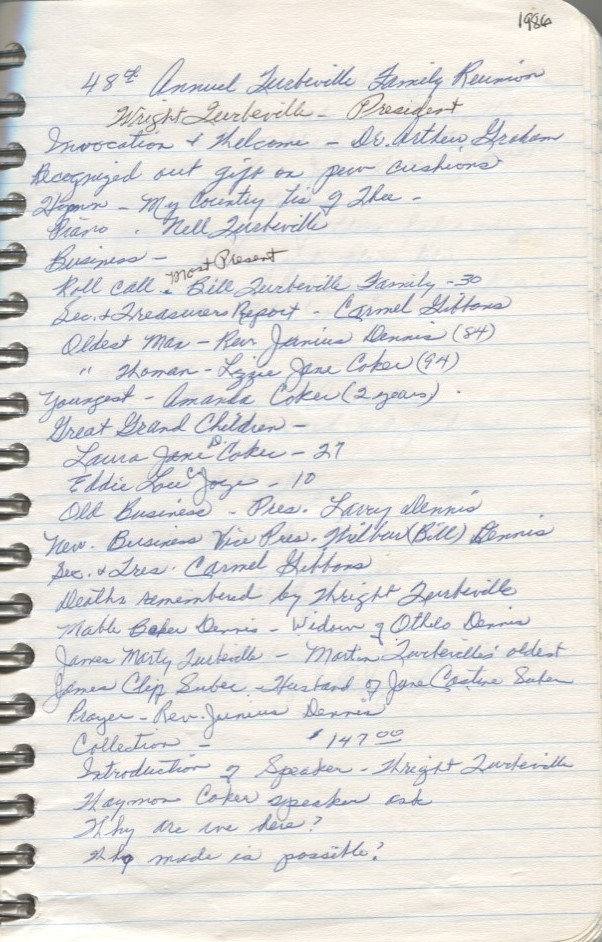 1986
48th Annual Turbeville Family Reunion
Wright Turbeville - President
Invocation & Welcome - Dr. Arthur Graham
Recognized out gift on pew cushions
Hymn - My Country Tis of Thee -
Piano - Nell Turbeville
Business -
Most Present
Roll Call - Bill Turbeville Family - 30
Sec. & Treasurers Report - Carmel Gibbons
Oldest Man - Rev Junius Dennis (84)
" Woman - Lizzie Jane Coker (94)
Youngest - Amanda Coker (2 years)
Great Grand Children -
Laura Jane D. Coker - 27
Eddie Lou C Joye - 10
Old Business - Pres. Larry Dennis
New. Business Vice Pres. Wilbur (Bill) Dennis
Sec. & Tres. Carmel Gibbons
Deaths remembered by Wright Turbeville
Mable Baker Dennis - Widow of Othelo Dennis
James Marty Turbeville - Martin Turbevilles' oldest
James Clip Suber - Husband of Jane Suber
Prayer - Rev. Junius Dennis
Collection - $147.00
Introduction of Speaker - Wright Turbeville
Waymon Coker speaker ask
Why are we here?
Who made is possible?